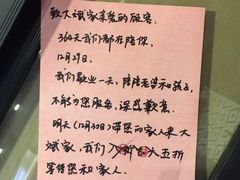 致大斌家亲爱的顾客：
364天我们都在陪你，
12月29日，
我们歇业一天，陪陪老婆和孩子，
不能为您服务，深感歉意。
明天（12月30日）带您的家人来大
斌家，我们 大五折
等待您和家人。